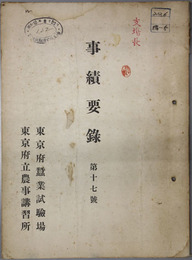 支場長
事績要録
第十七號
東京府蠶業試驗場
東京府立農事講習所